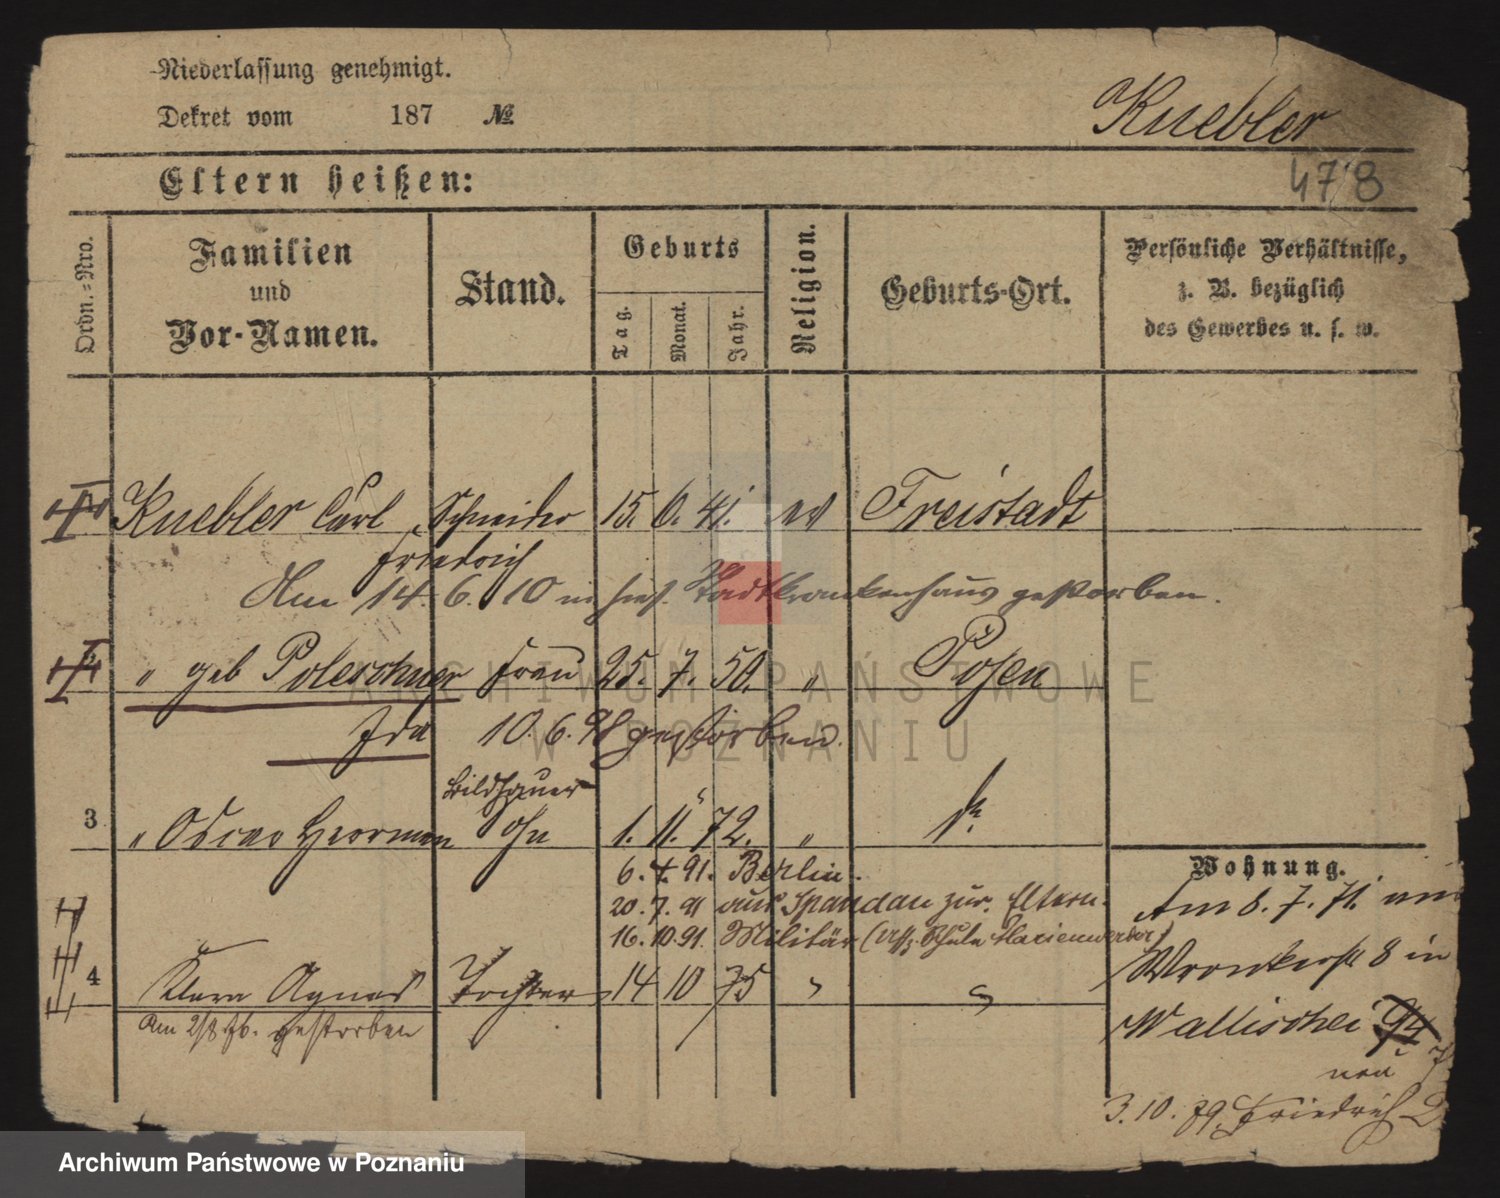 Niederlassung genehmigt.
Dekret vom 187 №
Kuebler
478
Eltern heißen:
Ordn.=Nro.
Familien
und
Vor-Namen.
Stand.
Geburts
Tag.
Monat.
Jahr.
Religion.
Geburts-Ort.
Persönliche Verhältnisse,
z. B. bezüglich
des Gewerbes u. s. w.
Kuebler Carl Schneider 15. 6. 41. ev Freistadt
Friedrich
Am 14. 6. 10 in hies. Stadtkrankenhaus gestorben.
" geb Poleschner Frau 25. 7. 50. " Posen
Ida 10. 6. 98 gestorben.
Bildhauer
3 " Oscar Herrman Sohn 1. 11. 72. " do.
6. 4. 91. Berlin.
20. 7. 91 aus Spandau zur. Eltern.
16. 10. 91. Militär (Uffz. Schule Marienwerder)
4 Klara Agnes Tochter 14 10 75 " "
Am 2/8 76. gestorben
Wohnung.
Am 8. 7. 71. um
Wronkerstr 8 in
Wallischei 94
neu 7
3. 10. 79. Friedrich
ARCHIWUM PAŃSTWOWE
W POZNANIU
Archiwum Państwowe w Poznaniu